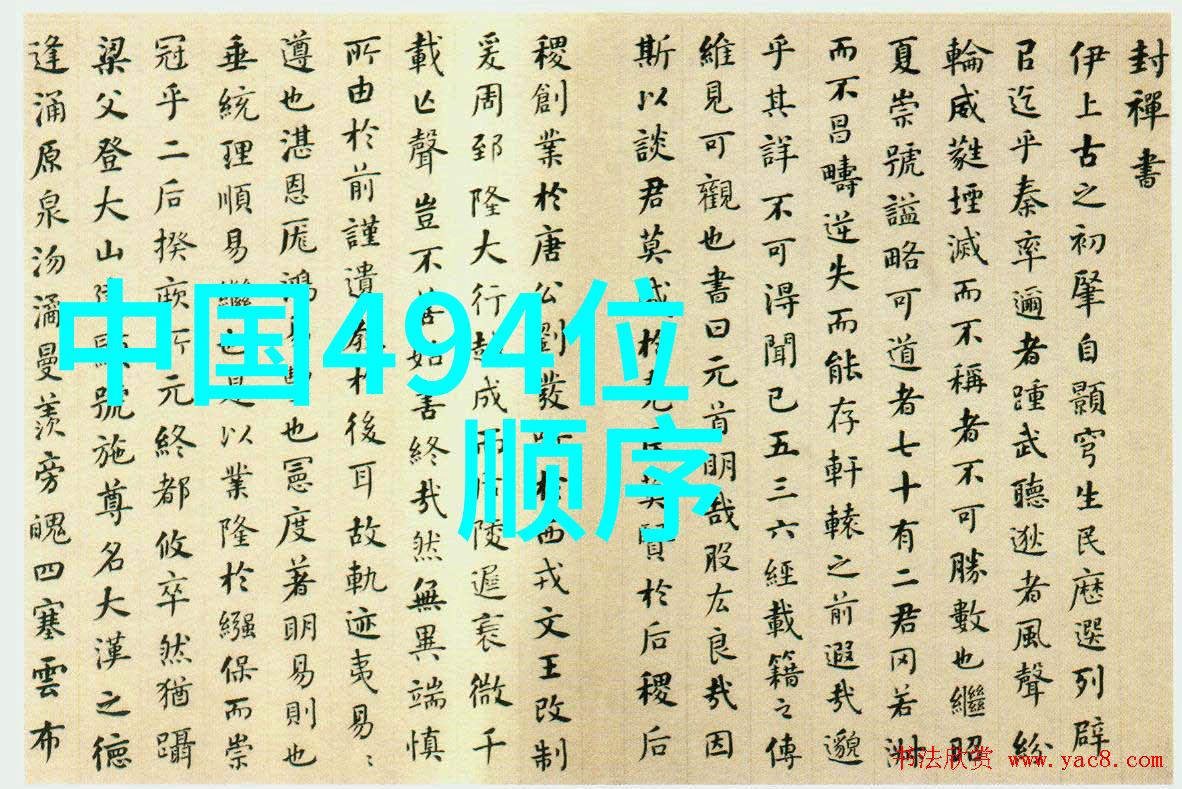 封禪書
伊上古之初肇自顥穹生民歷選列辟
㠯迄乎秦率邇者踵武聽逖者風聲紛
輪威蕤堙滅而不稱者不可勝數也繼昭
夏崇號謚略可道者七十有二君罔若淑
而不昌疇逆失而能存軒轅之前遐哉邈
乎其詳不可得聞已五三六經載籍之傳
維見可觀也書曰元首明哉股厷良哉因
斯以談君莫盛於堯臣莫賢於后稷后
稷創業於唐公劉發跡於西戎文王改制
爰周郅隆大行越成而后陵遲衰微千
載亡聲豈不善始善終哉然無異端慎
所由於前謹遺教於後耳故軌迹夷易〻
遵也湛恩厖鴻易豐也憲度著明易則也
垂統理順易繼也是以業隆於繈保而崇
冠乎二后揆厥所元終都攸卒然猶躡
梁父登大山建顯號施尊名大漢之德
逢涌原泉沕潏曼羨旁魄四塞雲布
中国494位
顺序
书法欣赏 www.yac8.com